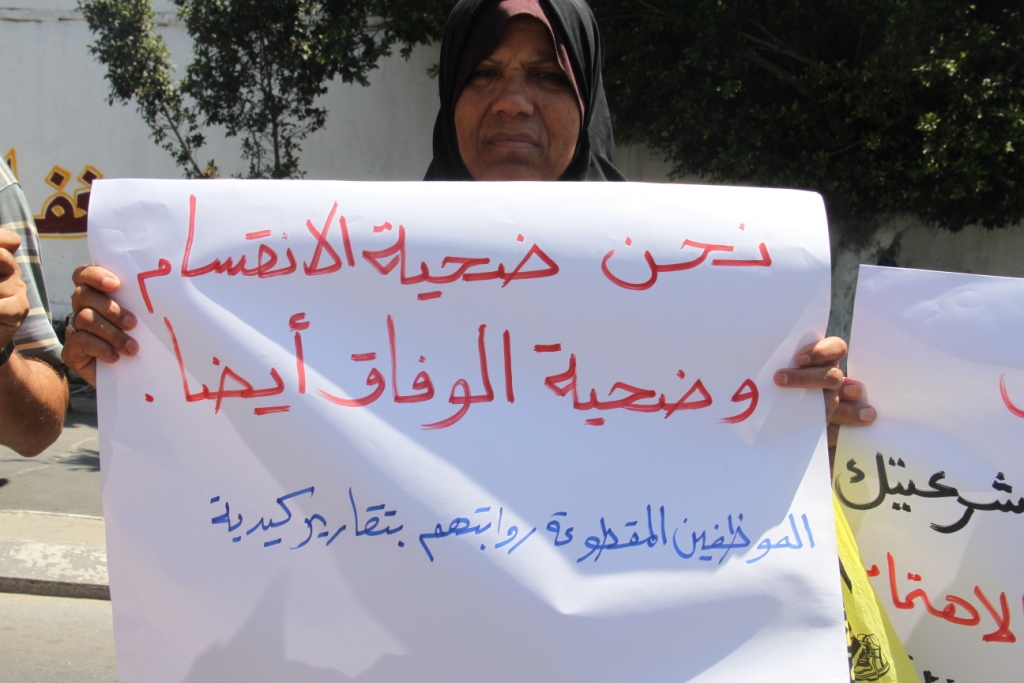 نحن ضحية الانقسام
وضحية الوفاق أيضا .
الموظفين المقطوعة رواتبهم بتقارير كيدية
شرعيتك
الاهتما